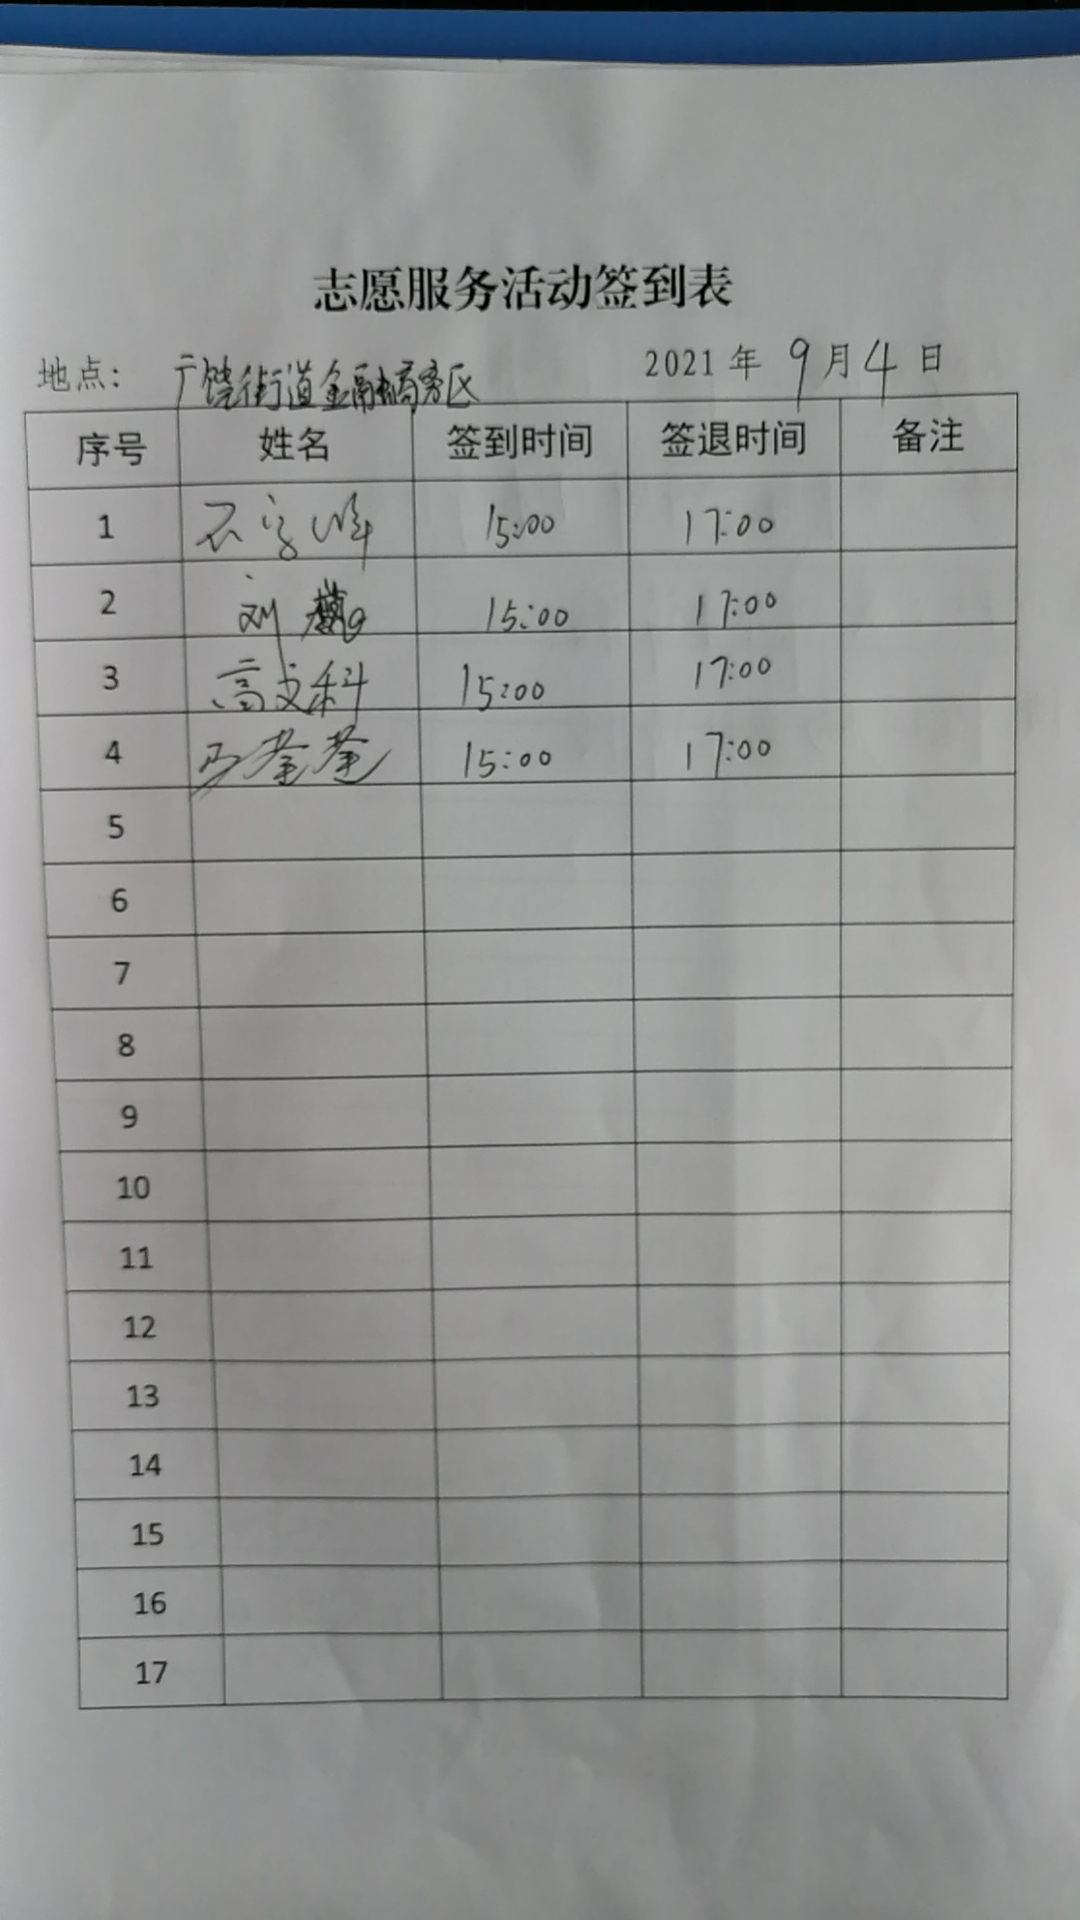 志愿服务活动签到表
地点： 广饶街道金融商务区 2021 年 9 月 4 日
序号 姓名 签到时间 签退时间 备注
1 15:00 17:00
2 刘 15:00 17:00
3 高文科 15:00 17:00
4 马荃荃 15:00 17:00
5
6
7
8
9
10
11
12
13
14
15
16
17